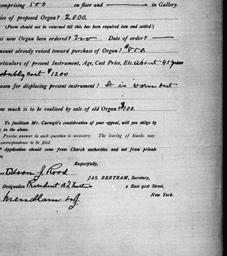 omprising 500 on floor and — Gallery.
ice of proposed Organ? 2000
(Form should not be returned till this has been inquired into and settled.)
is new Organ been ordered? No Date of order? —
mount already raised toward purchase of Organ? $500.
articulars of present Instrument, Age, Cost Price, Etc. about 41 years
probably cost $1200
eason for displacing present instrument? It is worn out
ow much is to be realized by sale of old Organ? $100.
To facilitate Mr. Carnegie's consideration of your appeal, will you oblige by
ng in the above.
Precise answer to each question is necessary. The leaving of blanks may
correspondence to be filed.
Application should come from Church authorities and not from private
Respectfully,
JAS. BERTRAM, Secretary,
Designation President Bd Trustees 2 East 91st Street,
Mendham NJ New York.